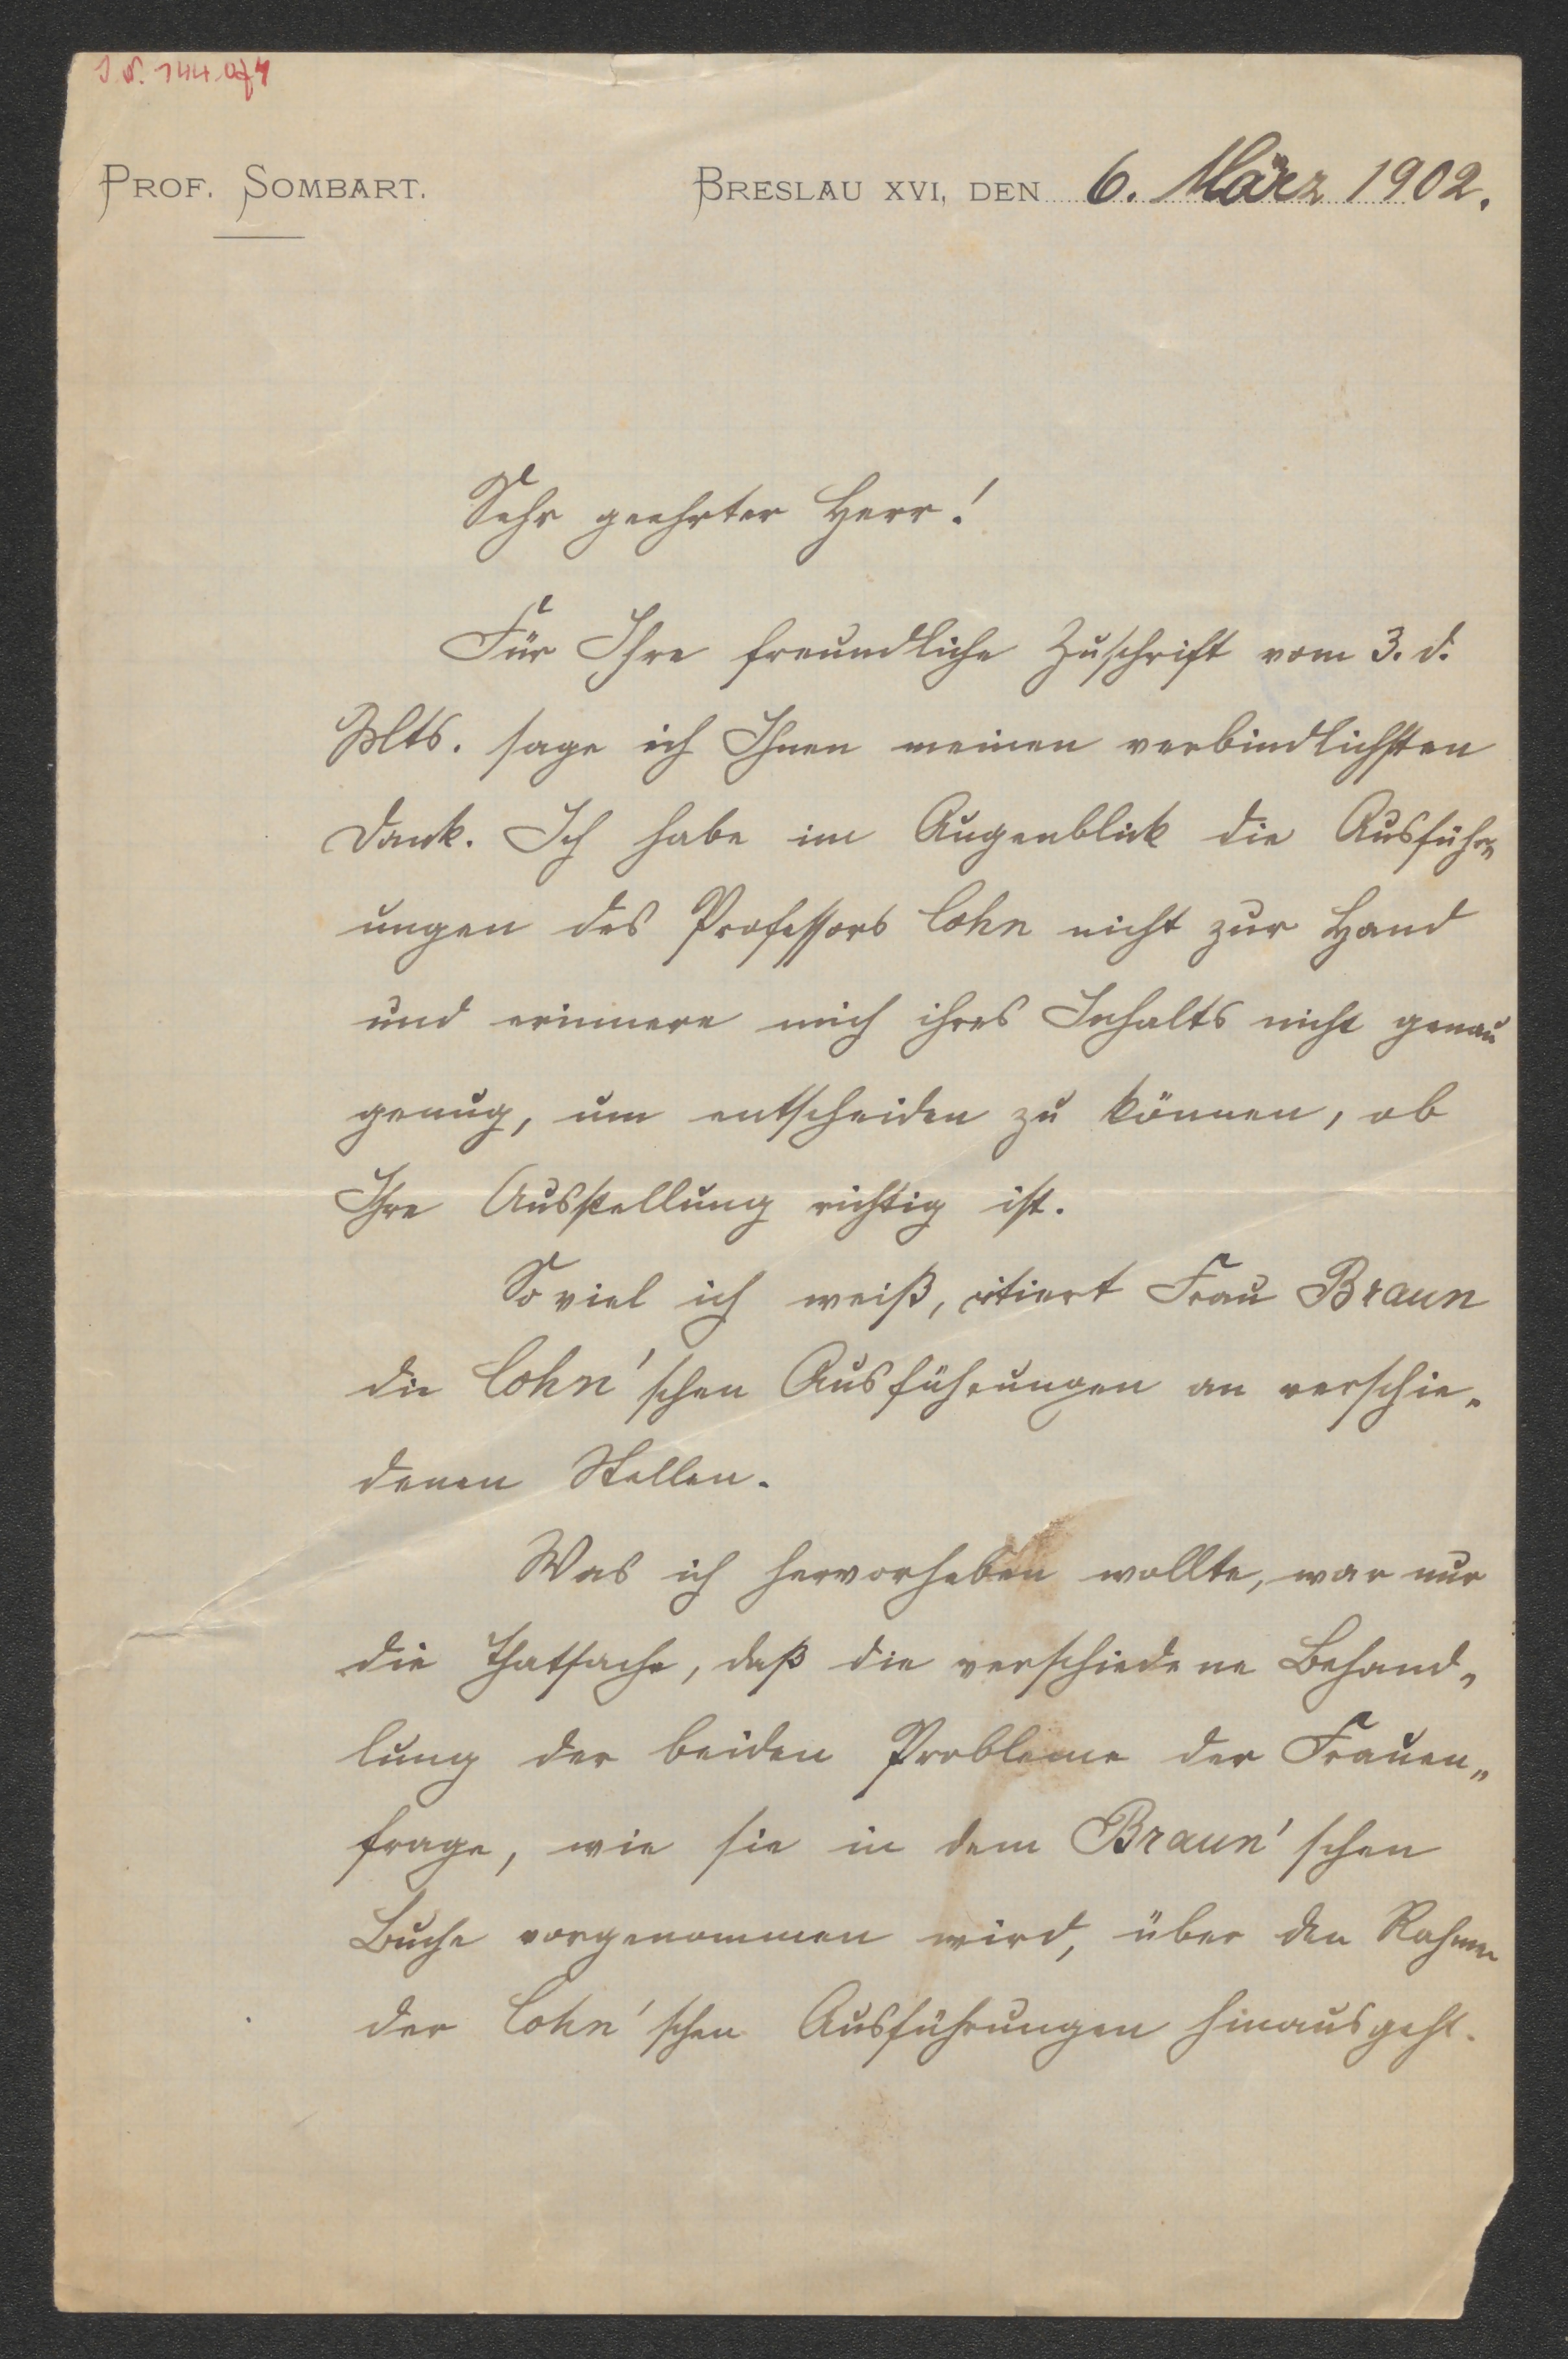 J.N. 144.074
PROF. SOMBART.
BRESLAU XVI, DEN 6. März 1902.
Sehr geehrter Herr!
Für Ihre freundliche Zuschrift vom 3. d.
Mts. sage ich Ihnen meinen verbindlichsten
Dank. Ich habe im Augenblick die Ausführ„
ungen des Professors Cohn nicht zur Hand
und erinnere mich ihres Inhalts nicht genau
genug, um entscheiden zu können, ob
Ihre Ausstellung richtig ist.
Soviel ich weiß, citiert Frau Braun
die Cohn'schen Ausführungen an verschie„
denen Stellen.
Was ich hervorheben wollte, war nur
die Thatsache, daß die verschiedene Behand„
lung der beiden Probleme der Frauen„
frage, wie sie in dem Braun'schen
Buche vorgenommen wird, über den Rahmen
der Cohn'schen Ausführungen hinausgeht.